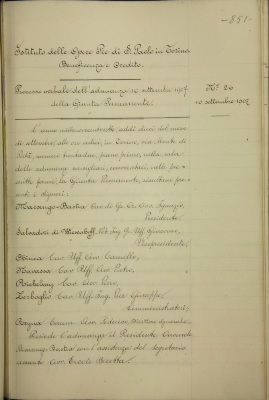 - 851 -
Istituto delle Opere Pie di S. Paolo in Torino
Beneficenza e Credito.
Processo verbale dell'adunanza 10 settembre 1907
della Giunta Permanente.
N.° 26
10 settembre 1907
L'anno millenovecentosette, addì dieci del mese
di settembre, alle ore in Torino, via Monte di
Pietà, numero trentadue, piano primo, nella sala
delle adunanze consigliari, convocatasi, nelle pre-
scritte forme, la Giunta Permanente, risultano pre-
senti i Signori:
Marsengo-Bastia Cav. di Gr. Cr. Avv. Ignazio,
Presidente
Salvadori di Wiesenhoff, Ing. Gr. Uff. Giacomo,
Vicepresidente,
Cav. Uff. Avv. Camillo,
Ravasso Cav. Uff. Avv.
Cav. Avv.
Zerboglio Cav. Uff. Ing. Pier Giuseppe,
Amministratori,
Comm. Avv. Federico, Direttore Generale.
Presiede l'adunanza il Presidente Onorevole
Marsengo-Bastia con l'assistenza del Segretario
Avv. Ercole Beretta.